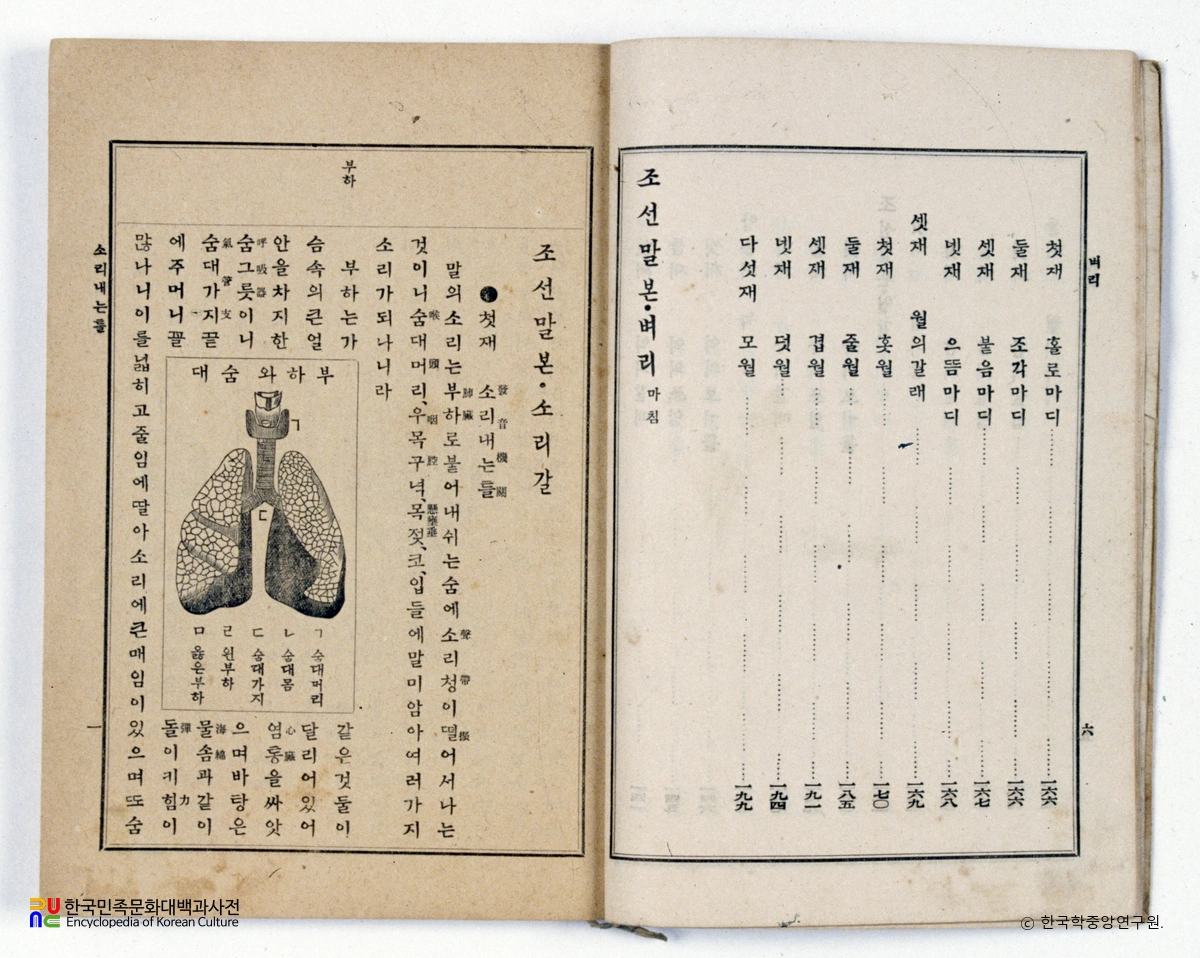 벼리
六
첫재 홀로마디 一六六
둘재 조각마디 一六六
셋재 붙음마디 一六七
넷재 으뜸마디 一六八
셋재 월의갈래 一六九
첫재 홋월 一七〇
둘재 줄월 一八五
셋재 겹월 一九一
넷재 덧월 一九四
다섯재 모월 一九九
조선말본•벼리 마침
조선말본•소리갈
●첫재 소리내는틀
發音機關
말의소리는부하로불어내쉬는숨에소리청이떨어서나는
肺臟 聲帶
것이니숨대머리、우목구녁、목젖、코、입들에말미암아여러가지
喉頭 咽腔 懸壅垂
소리가되나니라
부하
부하는가
슴속의큰얼
안을차지한
숨그릇이니
呼吸器
숨대가지끝
氣管支
에주머니꼴
부하와숨대
ㄱ
ㄷ
ㄱ 숨대머리
ㄴ 숨대몸
ㄷ 숨대가지
ㄹ 왼부하
ㅁ 옳은부하
같은것들이
달리어있어
염통을싸앗
心臟
으며바탕은
물솜과같이
海綿
돌이키힘이
彈力
많나니이를넓히고줄임에딸아소리에큰매임이있으며또숨
소리내는틀
一
한국민족문화대백과사전
Encyclopedia of Korean Culture
© 한국학중앙연구원.